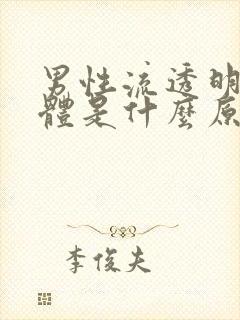 男性流透明
體是什麼原
李俊夫